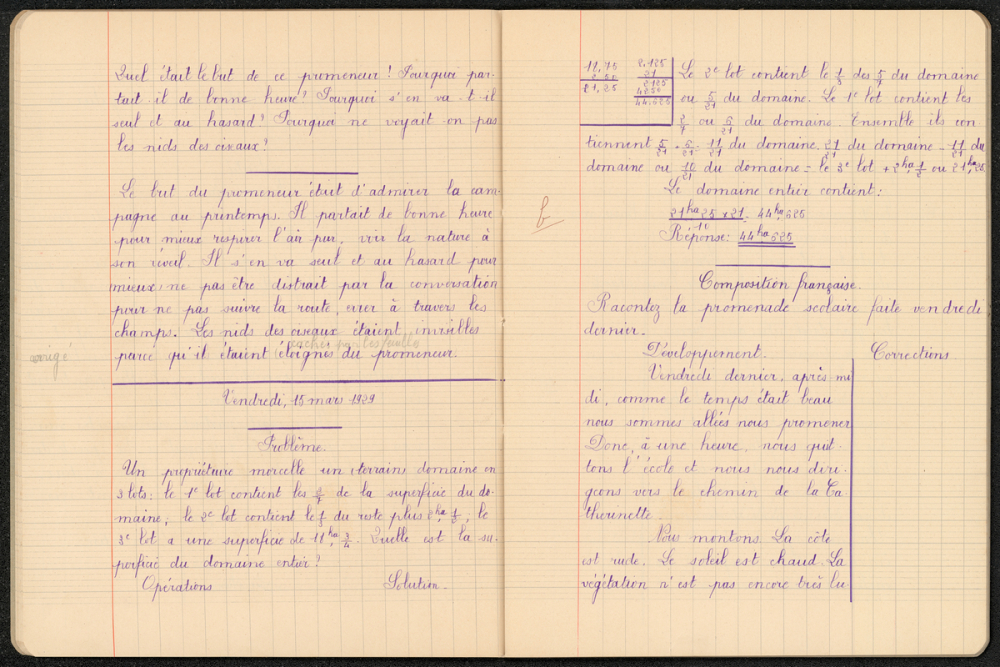 Quel était le but de ce promeneur? Pourquoi par-
tait-il de bonne heure? Pourquoi s'en va-t-il
seul et au hasard? Pourquoi ne voyait-on pas
les nids des oiseaux?
Le but du promeneur était d'admirer la cam-
pagne au printemps. Il partait de bonne heure
pour mieux respirer l'air pur, voir la nature à
son réveil. Il s'en va seul et au hasard pour
mieux, ne pas être distrait par la conversation
pour ne pas suivre la route, errer à travers les
champs. Les nids des oiseaux étaient invisibles
cacher par les feuilles
parce qu'il étaient (éloignés du promeneur.
corrigé
Vendredi, 15 mars 1929
Problème.
Un propriétaire morcelle un (terrain) domaine en
3 lots: le 1e lot contient les 2/7 de la superficie du do-
maine, le 2e lot contient le 1/3 du reste plus 2ha 1/2; le
3e lot a une superficie de 11ha 3/4. Quelle est la su-
perficie du domaine entier?
Opérations Solution.
b
2,125
21
2125
4250
44,625
21,25
Le 2e lot contient le 1/3 des 5/7 du domaine
ou 5/21 du domaine. Le 1e lot contient les
2/7 ou 6/21 du domaine. Ensemble ils con
tiennent 5/21 + 6/21 = 11/21 du domaine. 21/21 du domaine - 11/21 du
domaine ou 10/21 du domaine = le 3e lot + 2ha 1/2 ou 21ha,25
Le domaine entier contient:
21ha25 x 21 / 10 = 44ha,625
Réponse: 44ha625
Composition française.
Racontez la promenade scolaire faite vendredi
dernier.
Développement. Corrections
Vendredi dernier, après-mi
di, comme le temps était beau
nous sommes allées nous promener
Donc, à une heure, nous quit-
tons l'école et nous nous diri-
geons vers le chemin de la Ca
therinette.
Nous montons. La côte
est rude. Le soleil est chaud. La
végétation n'est pas encore très lu